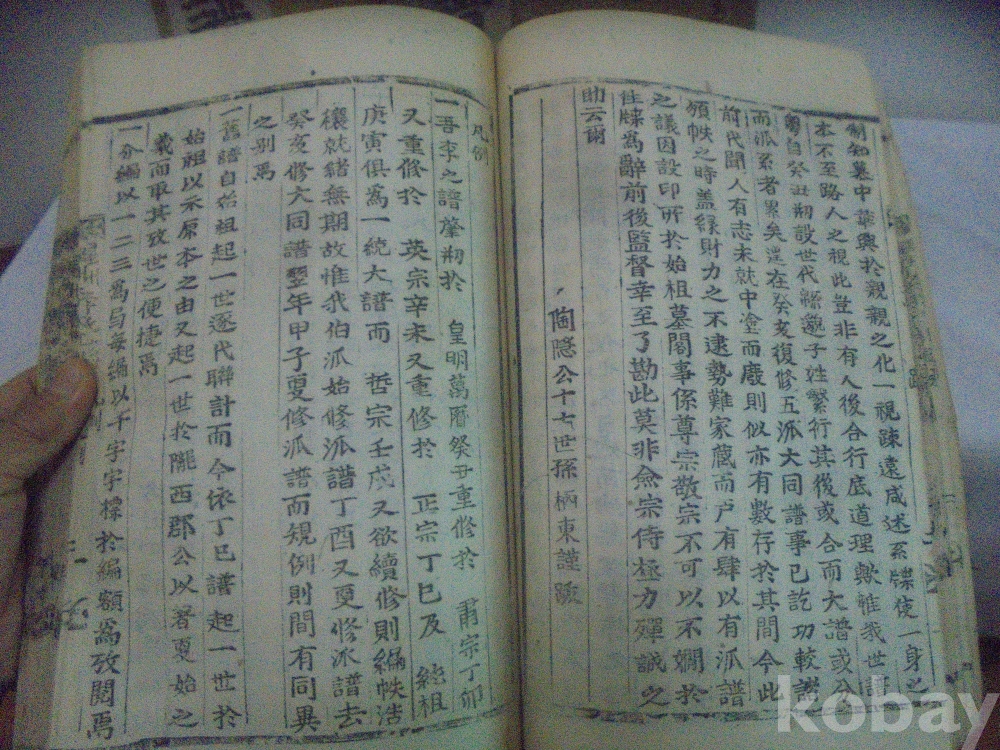 制知墓中華興於親親之化一視踈遠咸述系牒使一身之
本不至路人之視此豈非有人後合行底道理歟惟我世譜
粤自癸丑刱設世代綿邈子姓繁衍其後或合而大譜或分
而派系者累矣洼在癸亥復修五派大同譜事已訖功較諸
前代聞人有志未就中塗而廢則似亦有數存於其間今此
頒帙之時盖緣財力之不逮勢難家蔵而戶有肆以有派譜
之議因設印所於始祖墓閣事係尊宗敬宗不可以不嫺於
性牒爲辭前後監督幸至了勘此莫非僉宗侍極力殫誠之
助云爾
陶隱公十七世孫柄東謹跋
凡例
一吾李之譜肇刱於 皇明萬曆癸丑重修於 肅宗丁卯
又重修於 英宗辛未又重修於 正宗丁巳及 純祖
庚寅俱爲一統大譜而 哲宗壬戌又欲續修則編帙浩
穰就緒無期故惟我伯派始修派譜丁酉又更修派譜去
癸亥修大同譜翌年甲子更修派譜而規例則間有同異
之別焉
一舊譜自始祖起一世逐代聯計而今依丁巳譜起一世於
始祖以示原本之由又起一世於隴西郡公以著更始之
義而取其攷世之便捷焉
一分編以一二三爲局每編以千字字標於編額爲攷閱焉
kobay